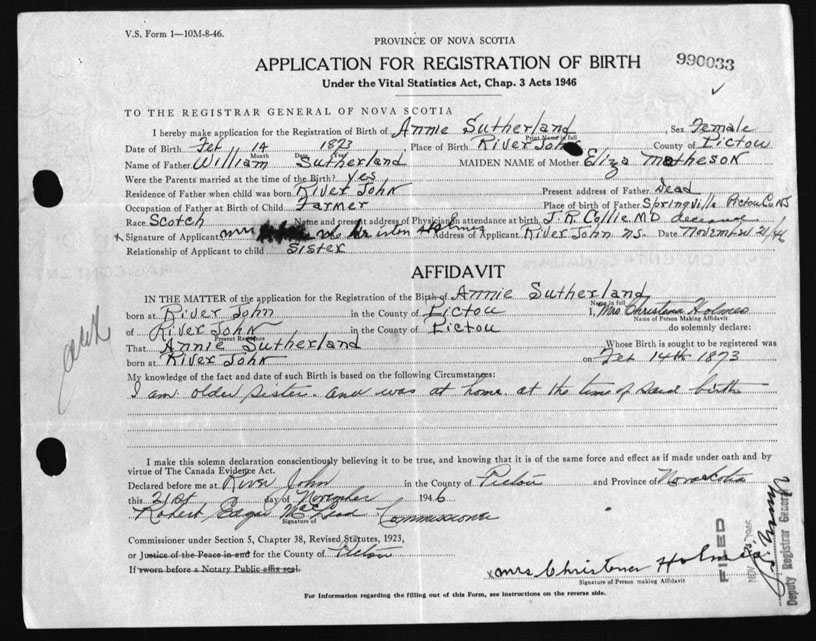 V.S. Form 1—10M-8-46.
PROVINCE OF NOVA SCOTIA
APPLICATION FOR REGISTRATION OF BIRTH
990033
Under the Vital Statistics Act, Chap. 3 Acts 1946
TO THE REGISTRAR GENERAL OF NOVA SCOTIA
I hereby make application for the Registration of Birth of Annie Sutherland Sex Female
Print Name in full
Date of Birth Feb 14 1873 Place of Birth River John County of Pictou
Month Date Year
Name of Father William Sutherland MAIDEN NAME of Mother Eliza Matheson
Were the Parents married at the time of the Birth? yes
Residence of Father when child was born River John Present address of Father Dead
Occupation of Father at Birth of Child Farmer Place of birth of Father Springville Pictou Co NS
Race Scotch Name and present address of Physician in attendance at birth J.R. Collie MD deceased
x Signature of Applicant mrs Holmes Address of Applicant River John N.S. Date November 21/46
Relationship of Applicant to child Sister
AFFIDAVIT
IN THE MATTER of the application for the Registration of the Birth of Annie Sutherland
Name in full
born at River John in the County of Pictou I, Mrs Christena Holmes
Name of Person Making Affidavit
of River John in the County of Pictou do solemnly declare:
Present Residence
That Annie Sutherland Whose Birth is sought to be registered was
born at River John on Feb 14th 1873
My knowledge of the fact and date of such Birth is based on the following Circumstances:
I am older sister and was at home at the time of said birth
I make this solemn declaration conscientiously believing it to be true, and knowing that it is of the same force and effect as if made under oath and by
virtue of The Canada Evidence Act.
Declared before me at River John in the County of Pictou and Province of Nova Scotia
this 21st day of November 1946
Robert Edgar McLeod Commissioner
Signature of
Commissioner under Section 5, Chapter 38, Revised Statutes, 1923,
or Justice of the Peace in and for the County of Pictou
If sworn before a Notary Public affix seal.
x mrs Christener Holmes
Signature of Person making Affidavit
FILED
NOV
Deputy Registrar General
For Information regarding the filling out of this Form, see instructions on the reverse side.